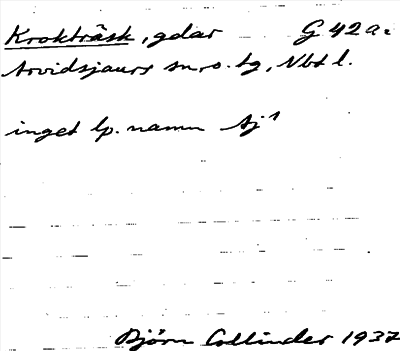 Krokträsk, gdar G 42 a.
Arvidsjaurs sn, o. tg, Nbt l.
inget lp. namn Aj¹
Björn Collinder 1937